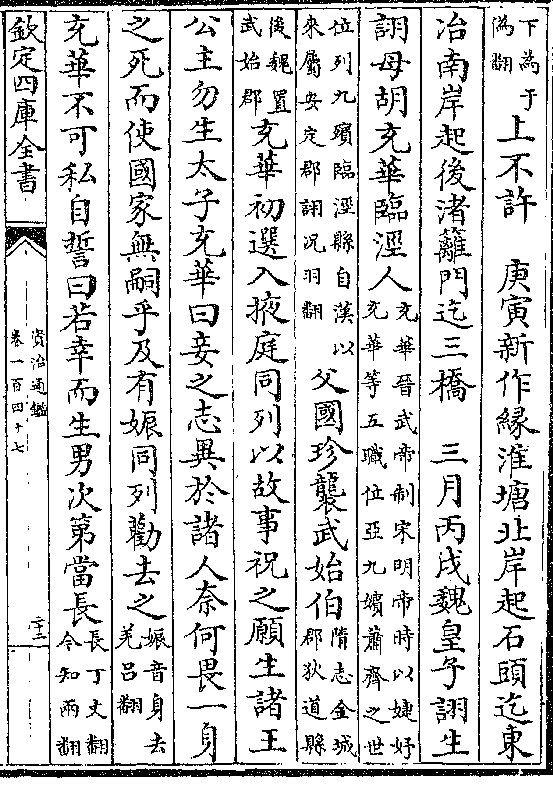 下為于偽翻上不許　庚寅新作緣淮塘北岸起石頭迄東
冶南岸起後渚籬門迄三橋　三月丙戌魏皇子詡生
詡母胡充華臨涇人充華晉武帝制宋明帝時以婕妤充華等五職位亞九嬪蕭齊之世
位列九殯臨涇縣自漢以來屬安定郡詡況羽翻父國珍襲武始伯隋志金城郡狄道縣
後魏置武始郡充華初選入掖庭同列以故事祝之願生諸王
公主勿生太子充華曰妾之志異於諸人奈何畏一身
之死而使國家無嗣乎及有娠同列勸去之娠音身去羌呂翻
充華不可私自誓曰若幸而生男次第當長長丁丈翻今知兩翻
欽定四庫全書
資治通鑑
卷一百四十七
二十三